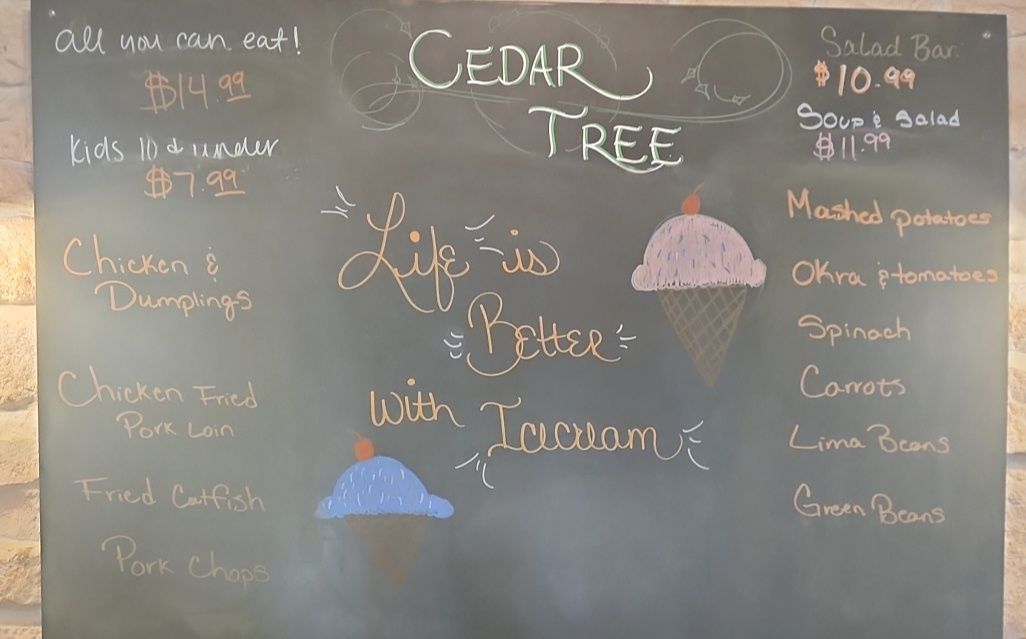 all you can eat!
$14.99
Kids 10 & under
$7.99
Chicken &
Dumplings
Chicken Fried
Pork Loin
Fried Catfish
Pork Chops
CEDAR
TREE
Life is
Better
with Icecream
Salad Bar
$10.99
Soup & Salad
$11.99
Mashed potatoes
Okra & tomatoes
Spinach
Carrots
Lima Beans
Green Beans